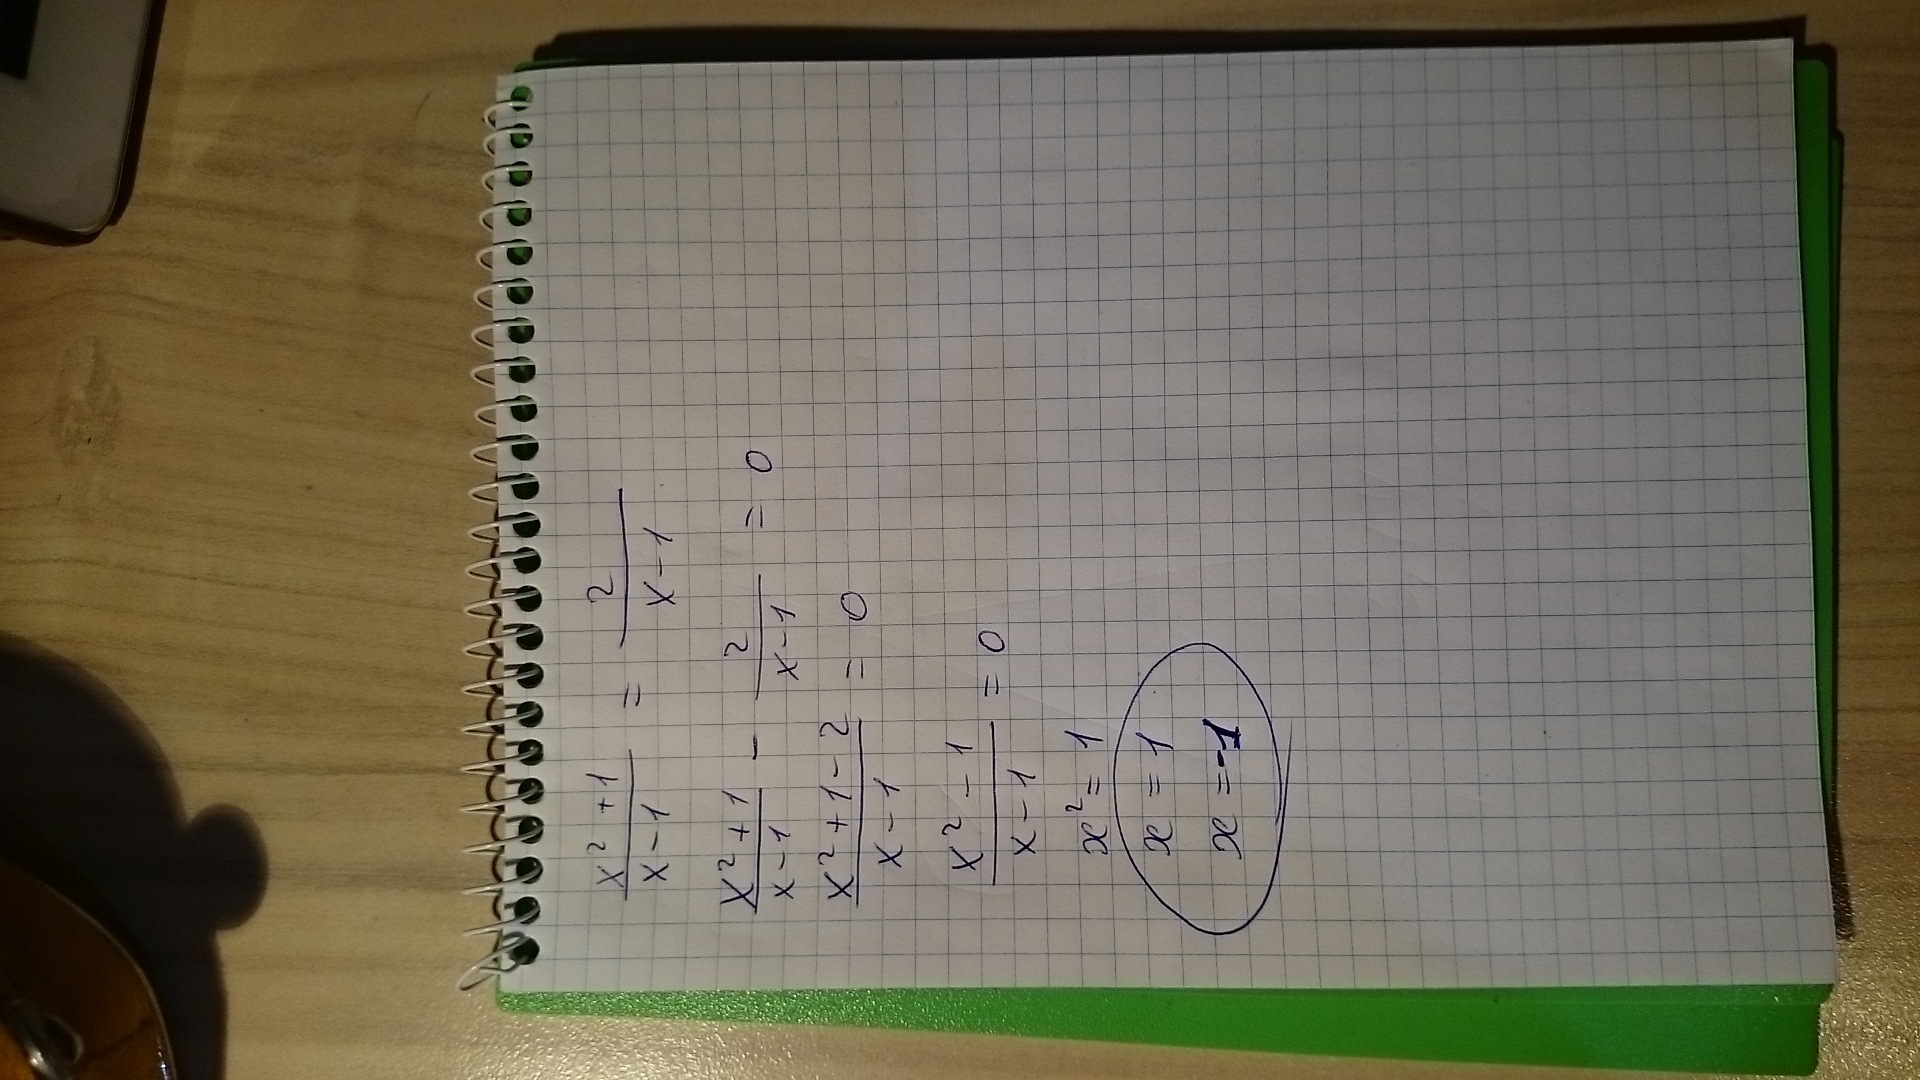 x²+1/x-1 = 2/x-1
x²+1/x-1 - 2/x-1 = 0
x²+1-2/x-1 = 0
x²-1/x-1 = 0
x²=1
x=1
x=-1